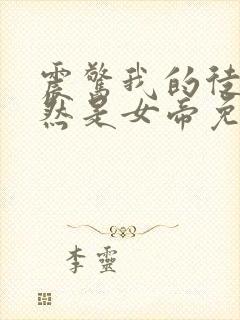 震驚我的徒
然是女帝免
李靈